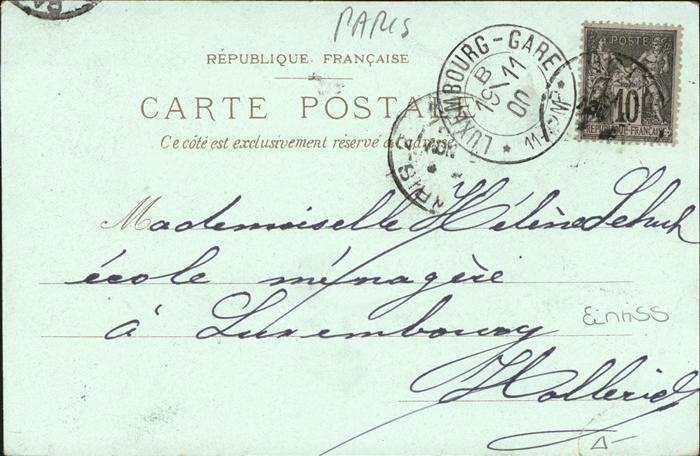 PARIS
RÉPUBLIQUE FRANÇAISE
CARTE POSTALE
Ce côté est exclusivement réservé à l'adresse
LUXEMBOURG-GARE
B
15 11
00
11-
POSTES
10
RÉPUBLIQUE FRANÇAISE
PARIS
Mademoiselle Hélène
école ménagère
à Luxembourg
Hollerich